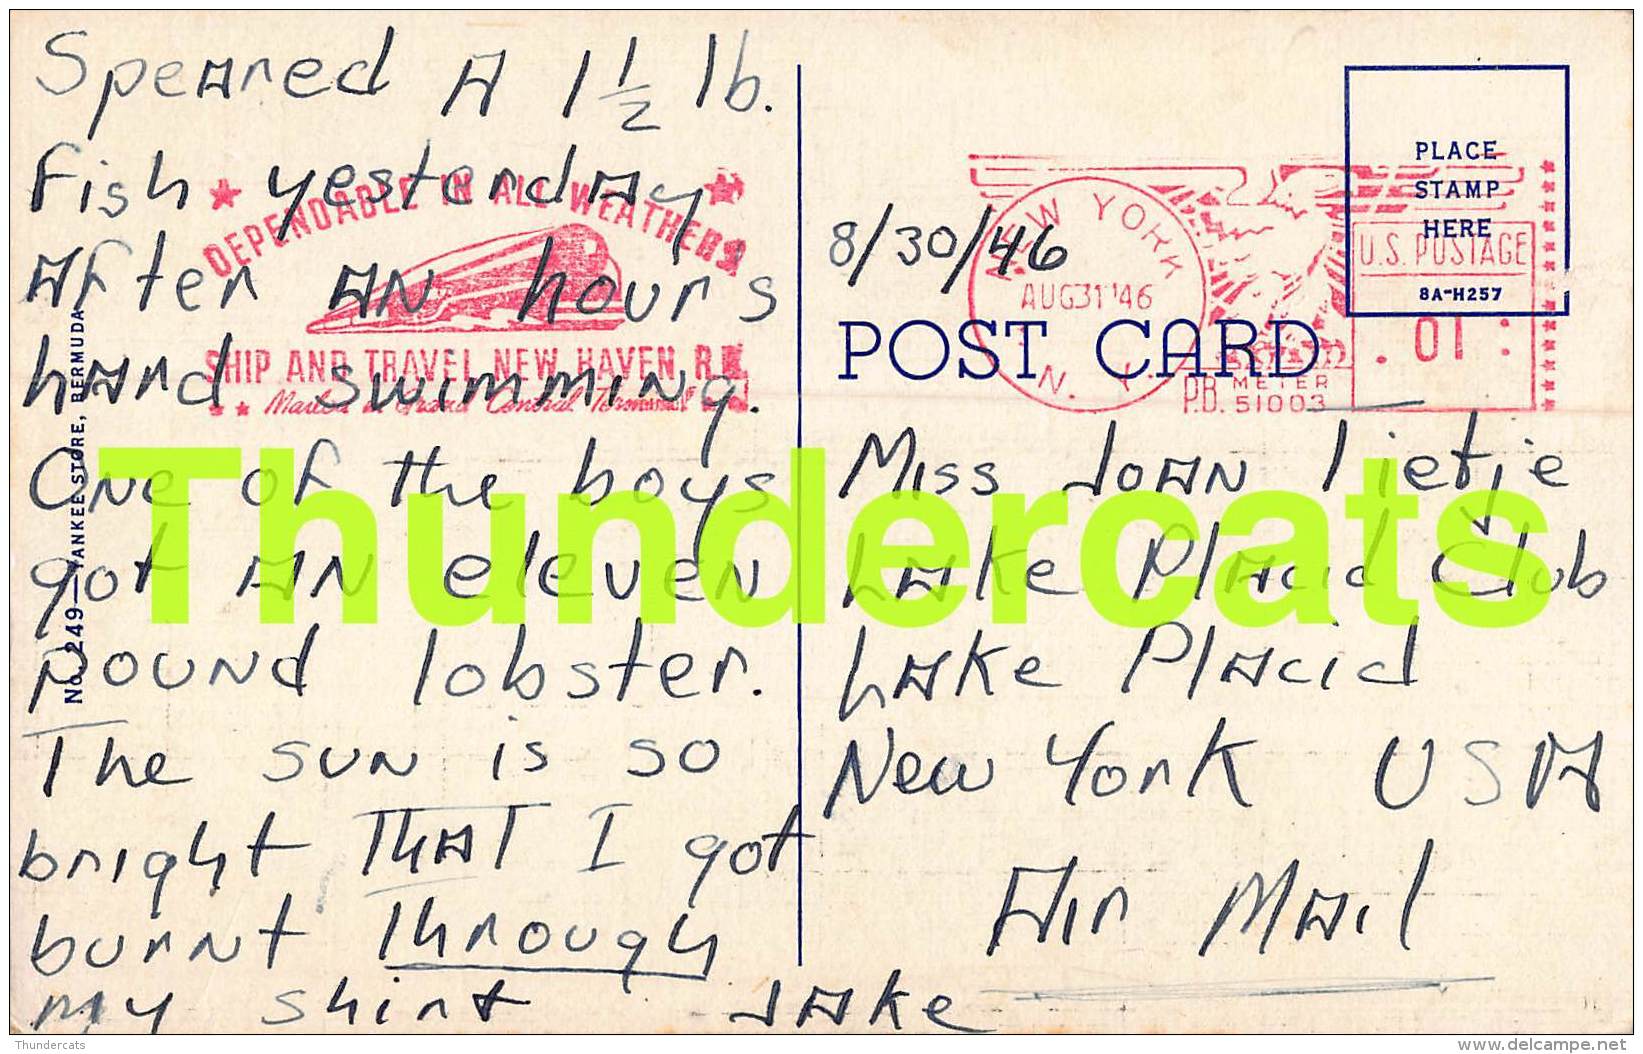 Speared A 1 1/2 lb.
Fish yesterday
After AN hours
hard swimming.
One of the boys
got AN eleven
pound lobster.
The sun is so
bright THAT I got
burnt through
my shirt Jake
No. 249—YANKEE STORE, BERMUDA
DEPENDABLE IN ALL WEATHERS
SHIP AND TRAVEL NEW HAVEN R.R.
Grand Central Terminal
8/30/46
NEW YORK
AUG 31 '46
N. Y.
PLACE
STAMP
HERE
U.S. POSTAGE
8A-H257
01
P.B. METER
51003
POST CARD
Miss Joan Tietje
Lake Placid Club
Lake Placid
New York USA
Air Mail
Thundercats
Thundercats
www.delcampe.net